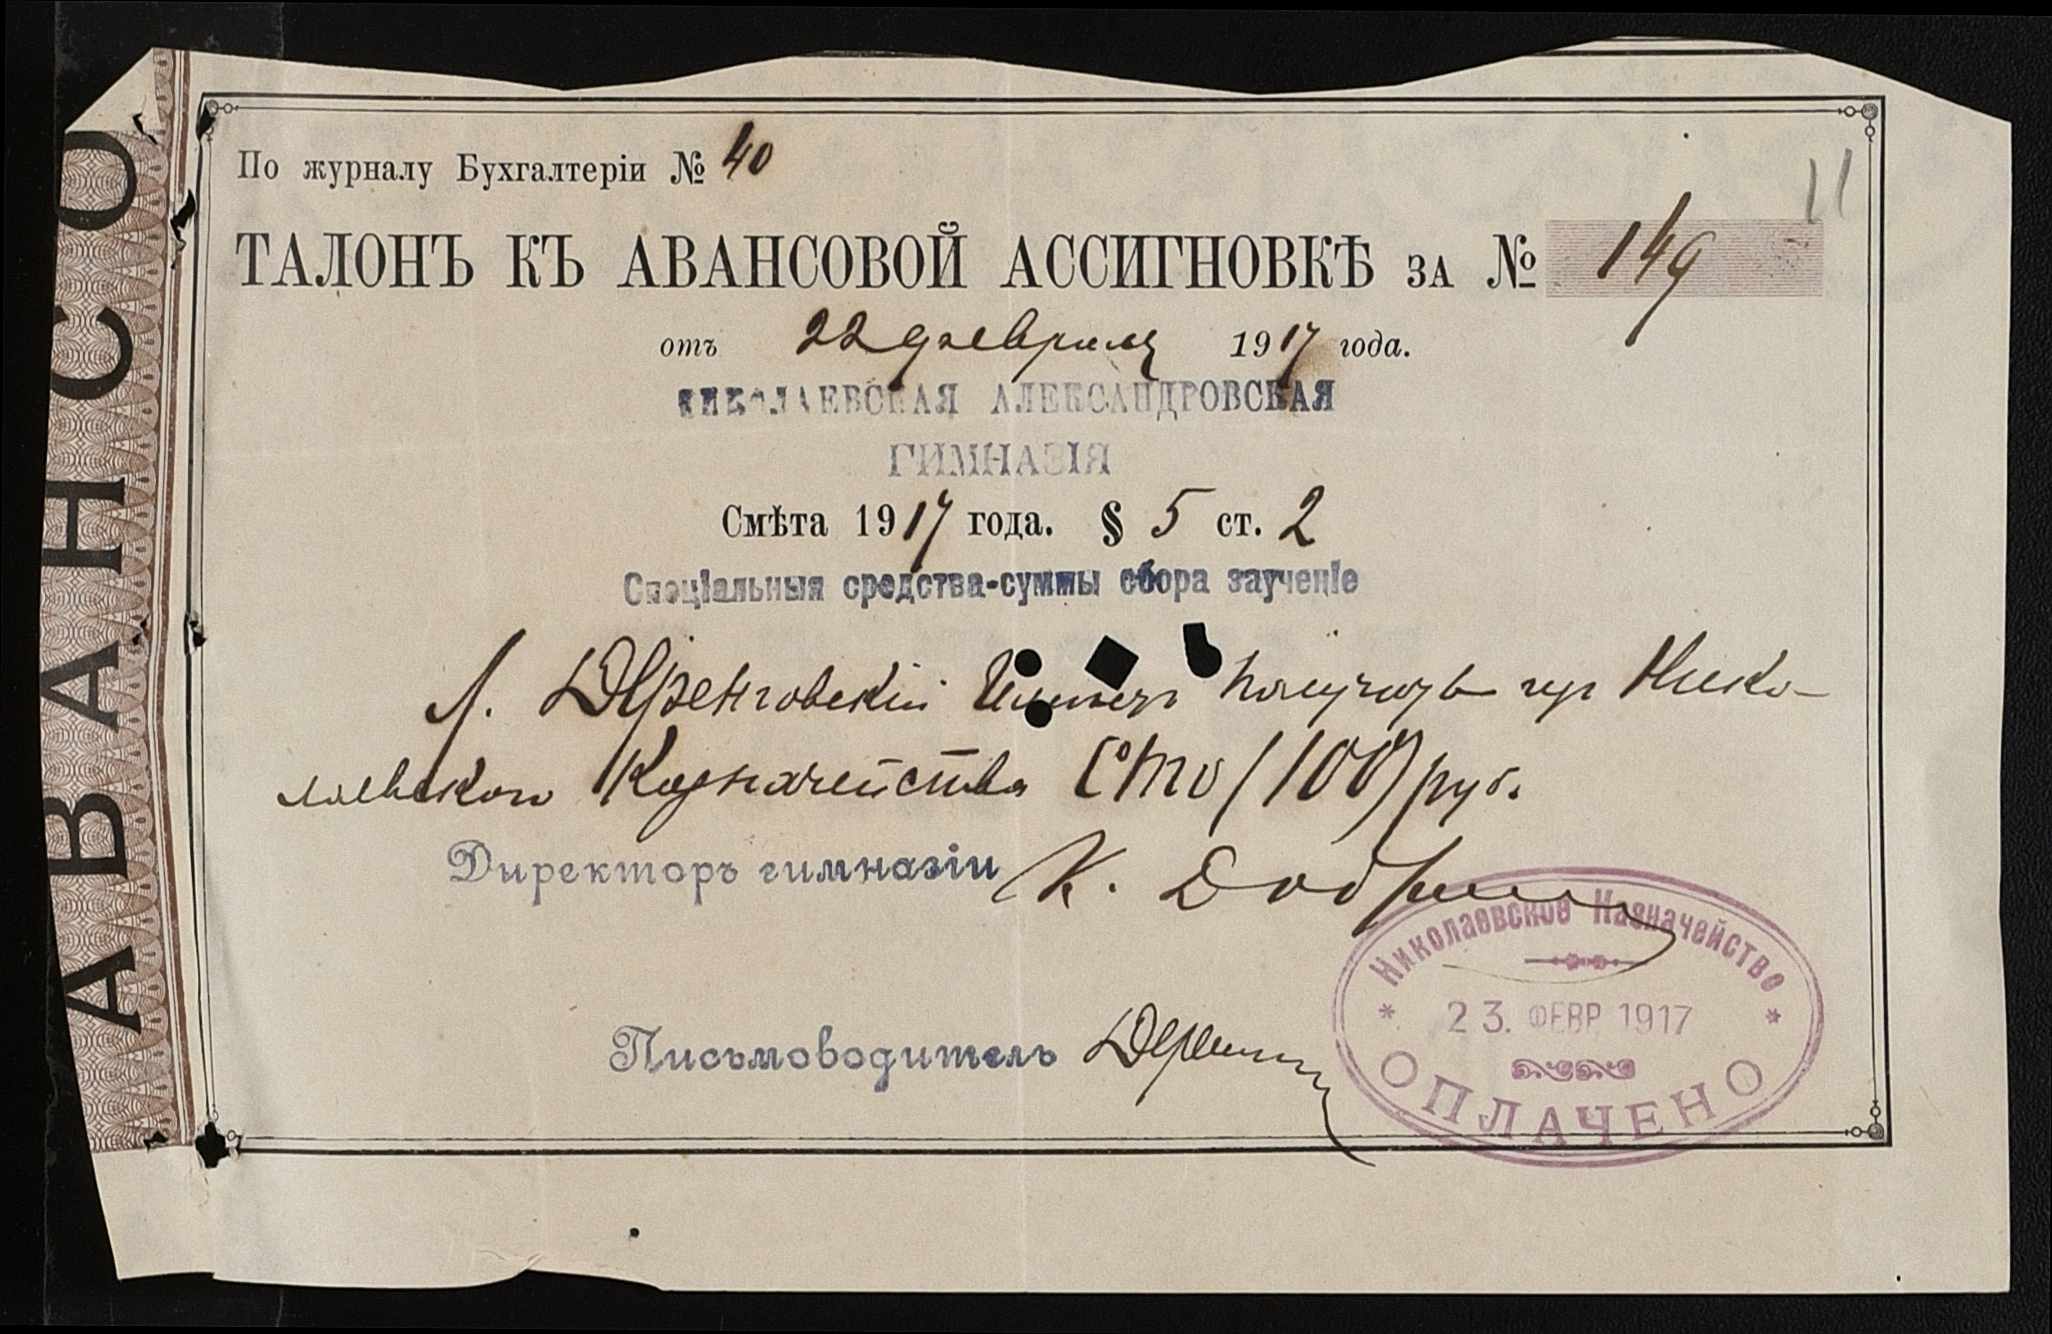 По журналу Бухгалтеріи № 40
11
ТАЛОНЪ КЪ АВАНСОВОЙ АССИГНОВКѢ ЗА № 149
отъ 22 февраля 1917 года.
НИКОЛАЕВСКАЯ АЛЕКСАНДРОВСКАЯ
ГИМНАЗІЯ
Смѣта 1917 года. § 5 ст. 2
Спеціальныя средства-суммы сбора заученіе
Л. Деренговскій получить изъ Нико-
лаевскаго Казначейства Сто (100) руб.
Директоръ гимназіи К.
Письмоводитель
Николаевское Казначейство
23. ФЕВР 1917
ОПЛАЧЕНО
АВАНСО